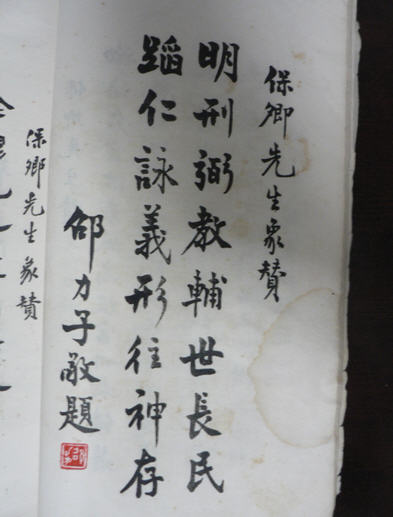 保卿先生象贊
明刑弼教輔世長民
蹈仁詠義形往神存
邵力子敬題
保卿先生象贊